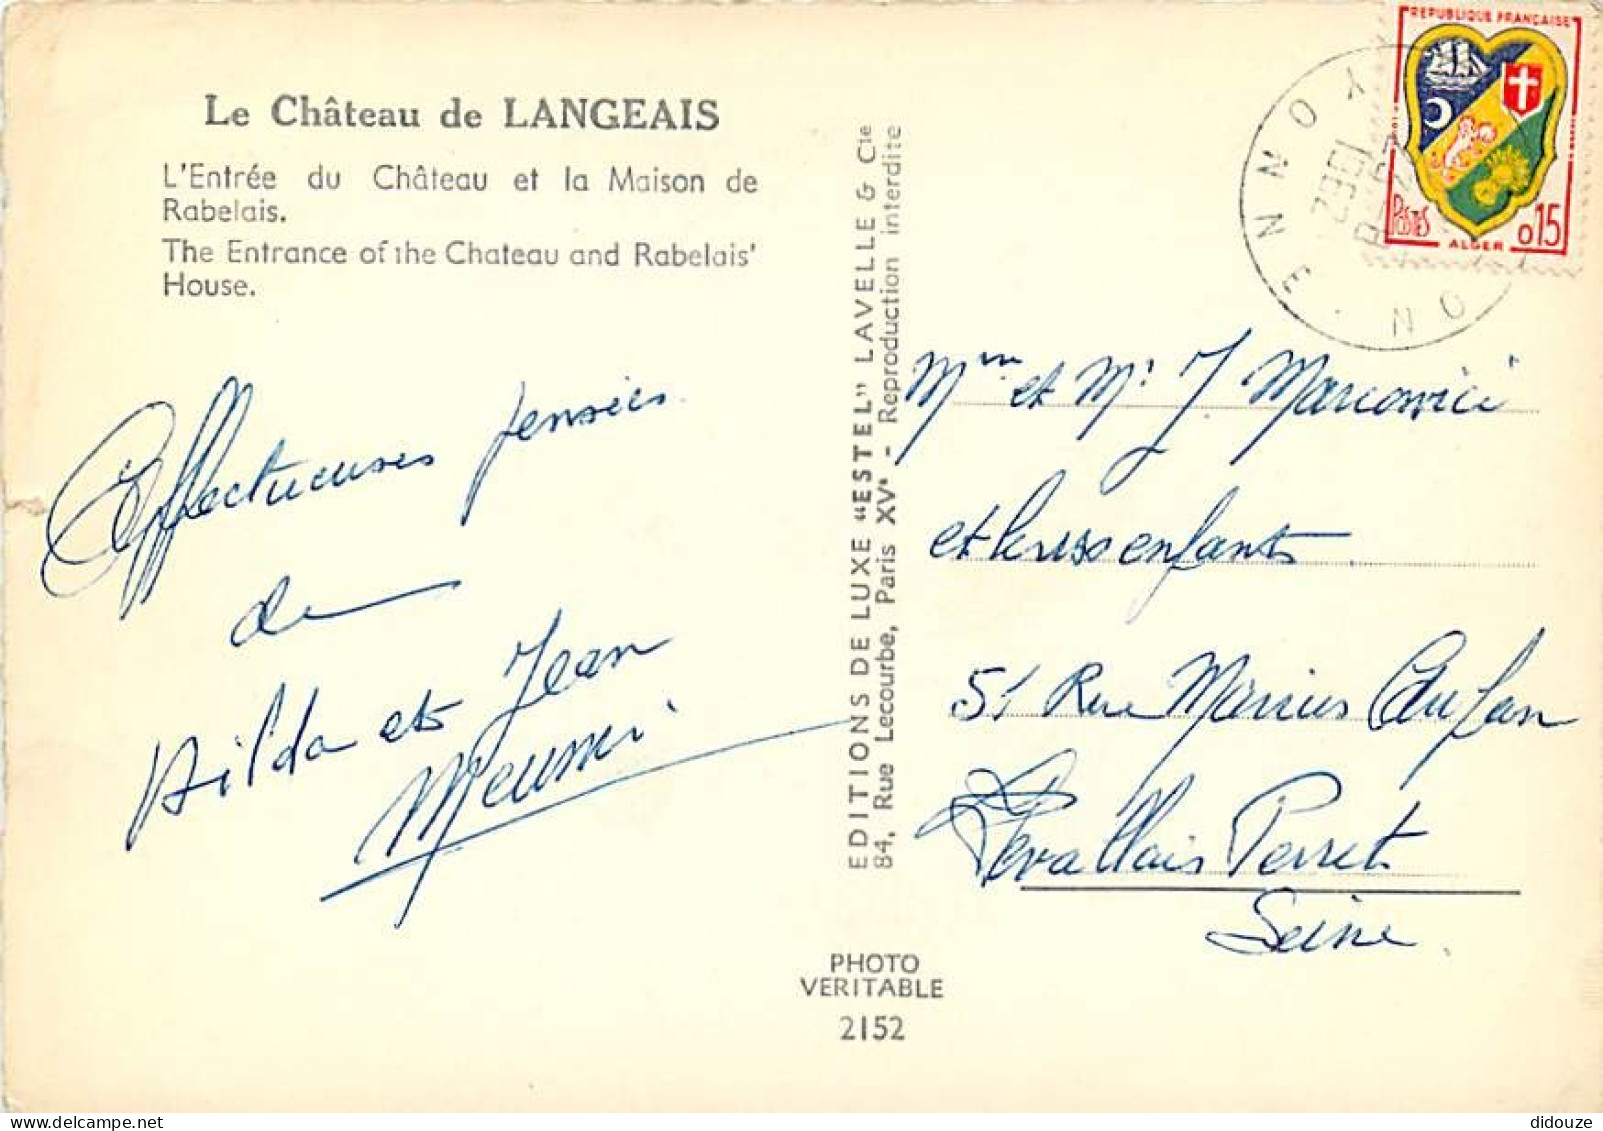 Le Château de LANGEAIS
L'Entrée du Château et la Maison de
Rabelais.
The Entrance of the Chateau and Rabelais'
House.
Affectueuses pensées
de
Hilda et Jean
EDITIONS DE LUXE "ESTEL" LAVELLE & Cie
84, Rue Lecourbe, Paris XVe - Reproduction interdite
PHOTO
VERITABLE
2152
REPUBLIQUE FRANÇAISE
POSTES
ALGER
0,15
1962
YONNE
Mme et Mr J Marcovici
et leurs enfants
51 Rue Marius Aufan
Levallois Perret
Seine
didouze